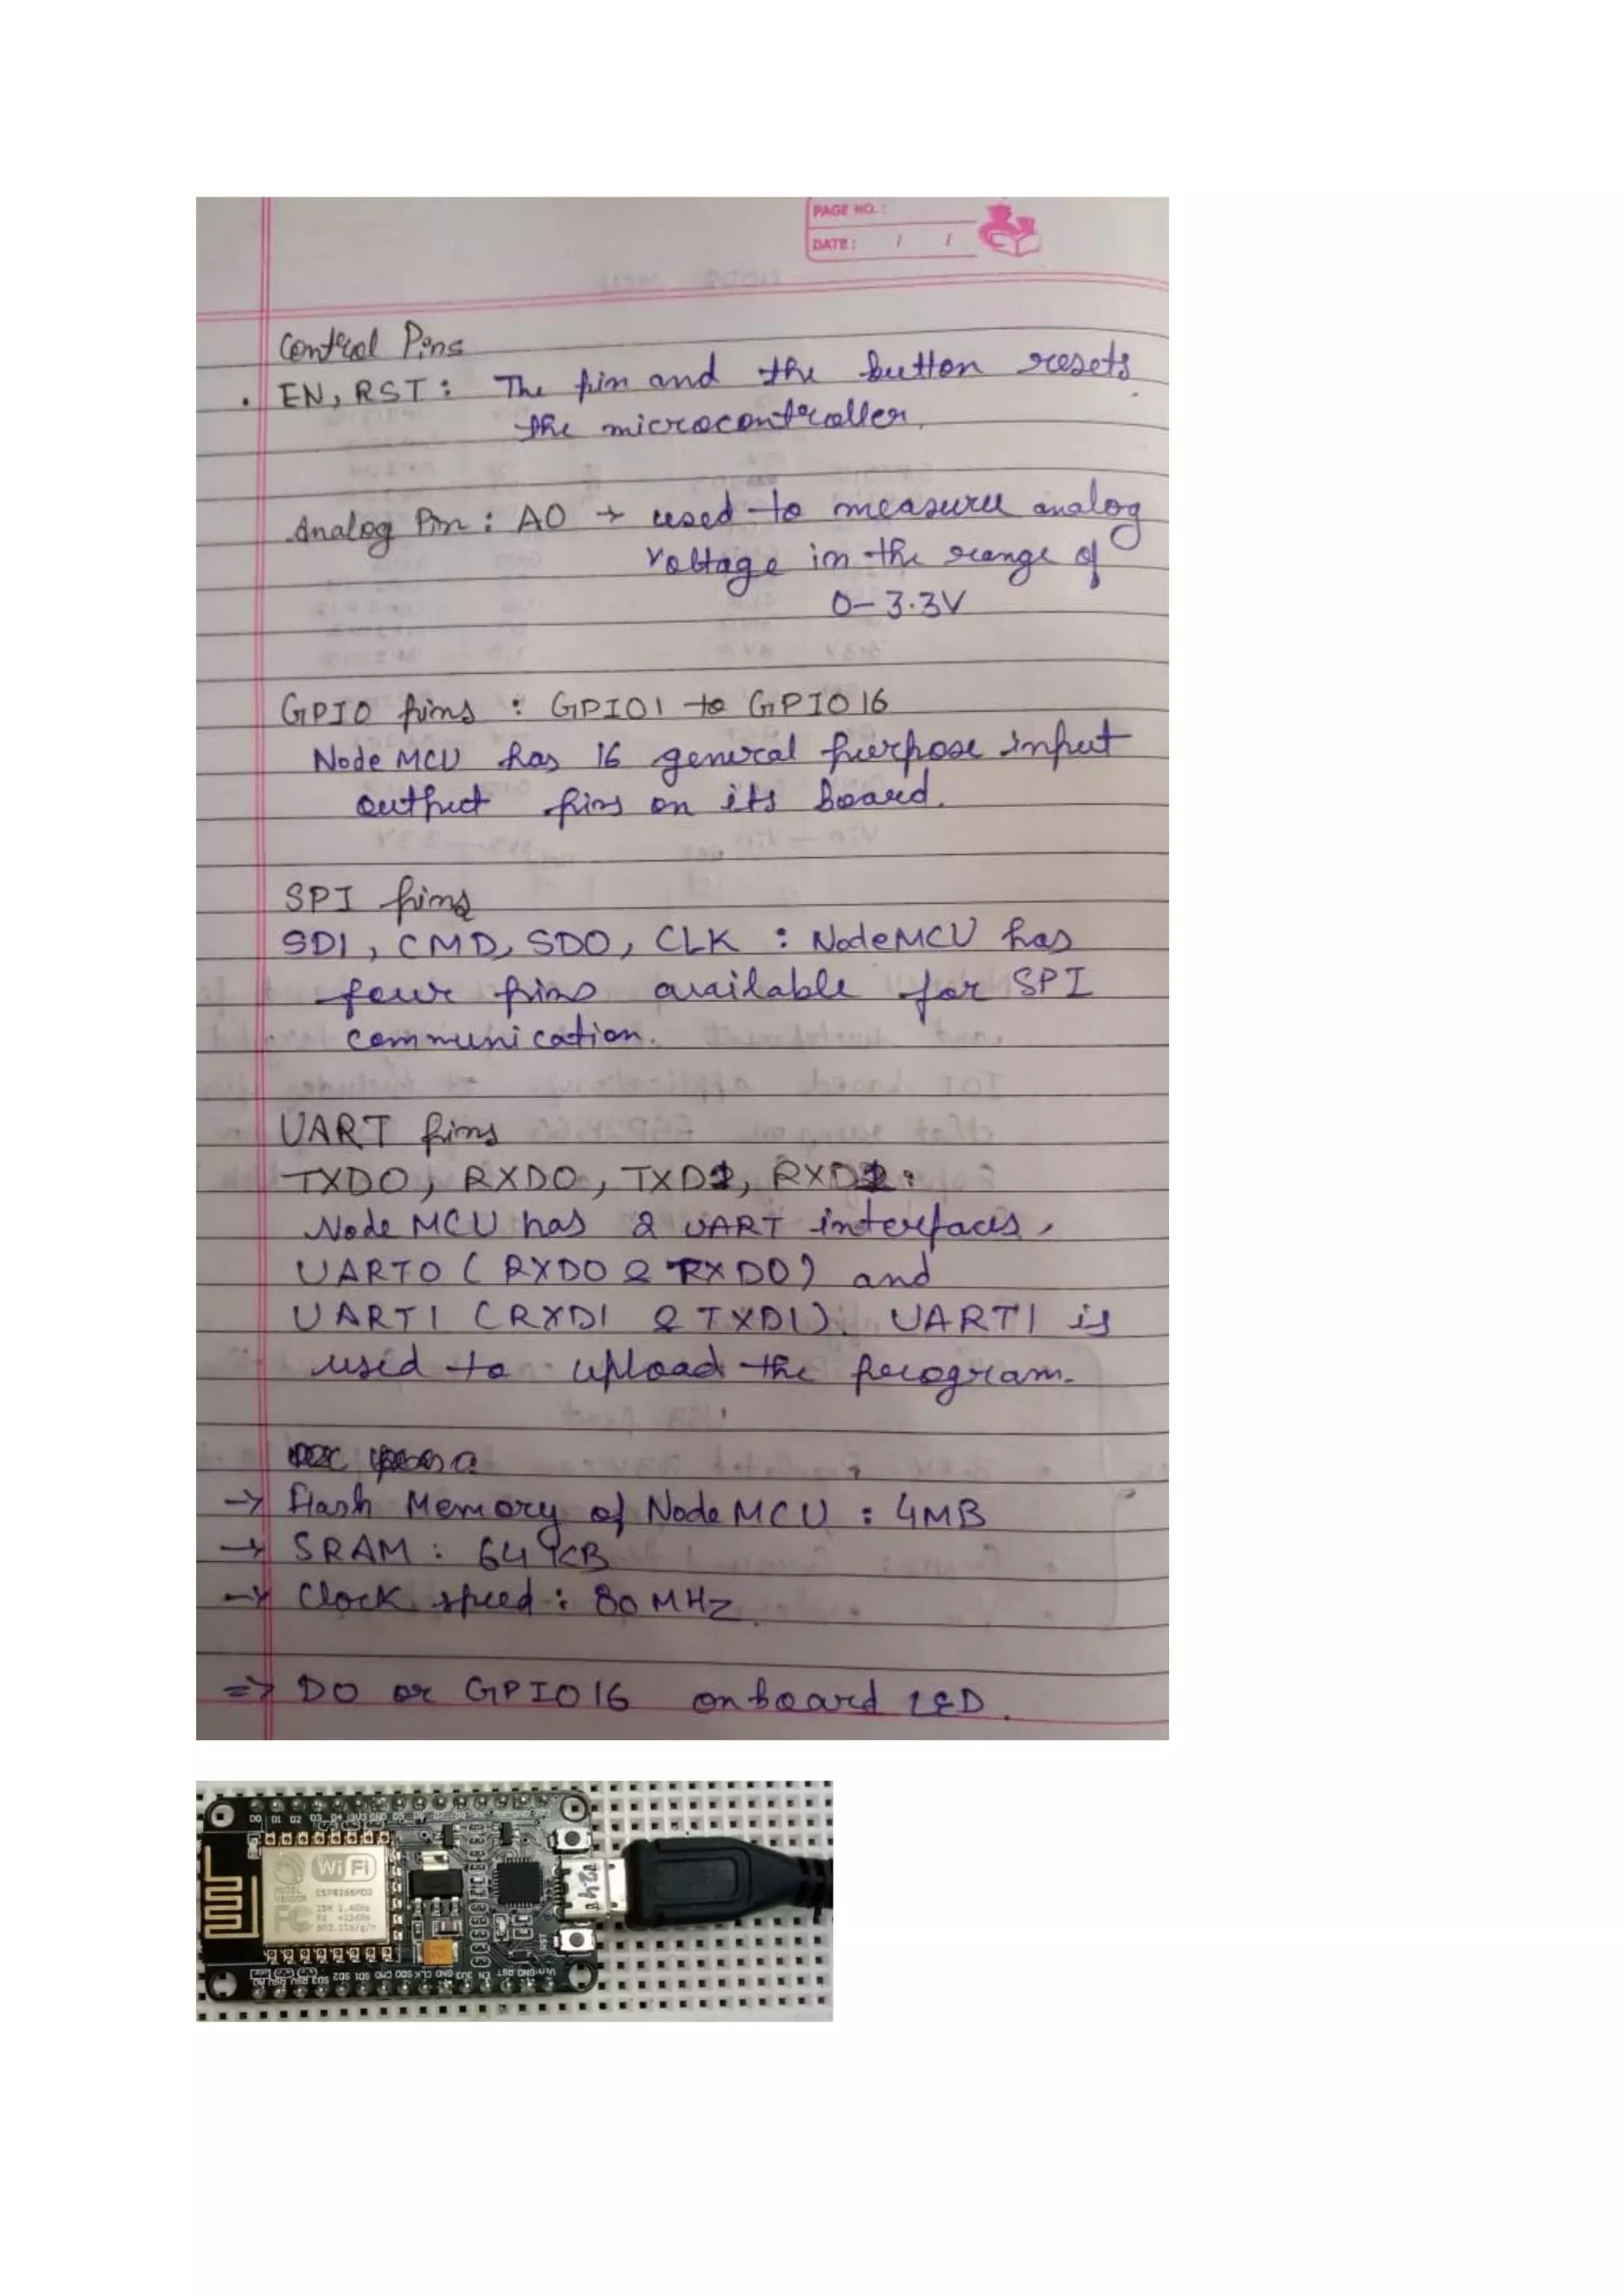 PAGE NO.:
DATE: / /
Control Pins
. EN, RST : The pin and the button resets
the microcontroller.
Analog Pin : A0 → used to measure analog
voltage in the range of
0-3.3V
GPIO pins : GPIO1 to GPIO16
Node MCU has 16 general purpose input
output pins on its board.
SPI pins
SD1, CMD, SDO, CLK : NodeMCU has
four pins available for SPI
communication.
UART pins
TXD0, RXD0, TXD2, RXD2:
Node MCU has 2 UART interfaces,
UART0 (RXD0 & TXD0) and
UART1 (RXD1 & TXD1). UART1 is
used to upload the program.
→ Flash Memory of Node MCU : 4MB
→ SRAM : 64 KB
→ Clock speed : 80 MHz.
⇒ D0 or GPIO16 onboard LED.
D0 D1 D2 D3 D4 3V3 GND D5 D6 D7
WiFi
MODEL
VENDOR
ESP8266MOD
ISM 2.4GHz
PA +25dBm
802.11b/g/n
FC
RST
A0 RSV RSV SD3 SD2 SD1 CMD SD0 CLK GND 3V3 EN RST GND Vin